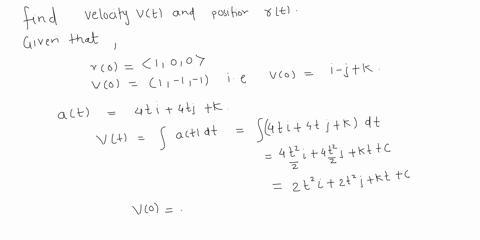 find velocity V(t) and position r(t).
Given that,
r(0) = <1, 0, 0>
V(0) = (1, -1, -1) i.e V(0) = i-j+k.
a(t) = 4ti + 4tj + k.
V(t) = ∫ a(t) dt = ∫(4ti + 4tj + k) dt
= 4t²/2 i + 4t²/2 j + kt + c
= 2t²i + 2t²j + kt + c
V(0) = .